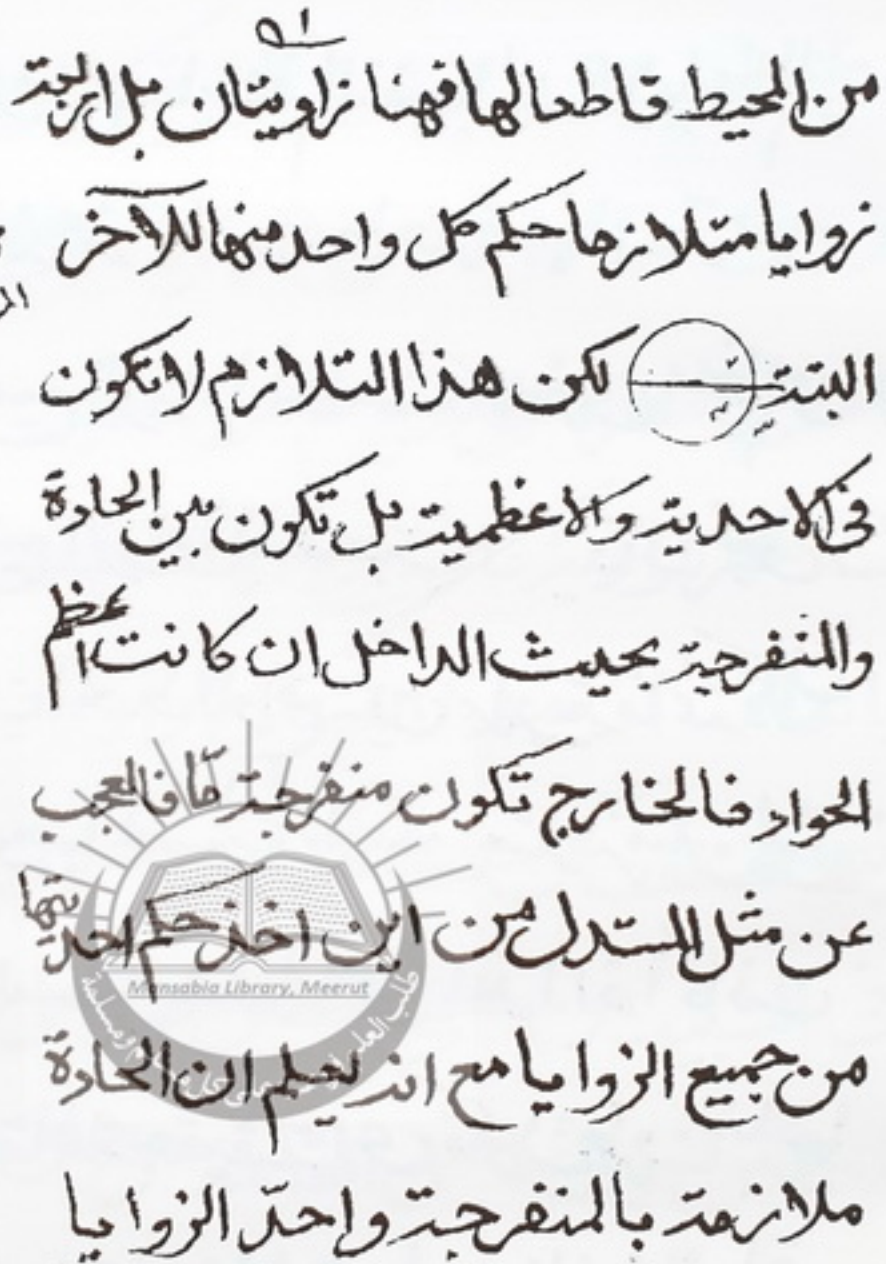 ٥١
من المحيط قاطعا لها فهنا زاويتان بل اربعة
زوايا متلازما حكم كل واحد منها للآخر
البتة لكن هذا التلازم لا تكون
في الاحدية والاعظمية بل تكون بين الحادة
والمنفرجة بحيث الداخل ان كانت اعظم
الحواد فالخارج تكون منفرجة ما فالعجب
عن مثل المستدل من اين اخذ حكم احديتها
من جميع الزوايا مع انه يعلم ان الحادة
ملازمة بالمنفرجة واحدّ الزوايا
Mansabia Library, Meerut